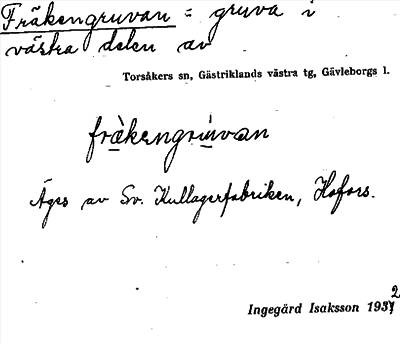 Fräkengruvan = gruva i
västra delen av
Torsåkers sn, Gästriklands västra tg, Gävleborgs l.
frä̀kengrùvan
Äges av Sv. Kullagerfabriken, Hofors.
Ingegärd Isaksson 1932